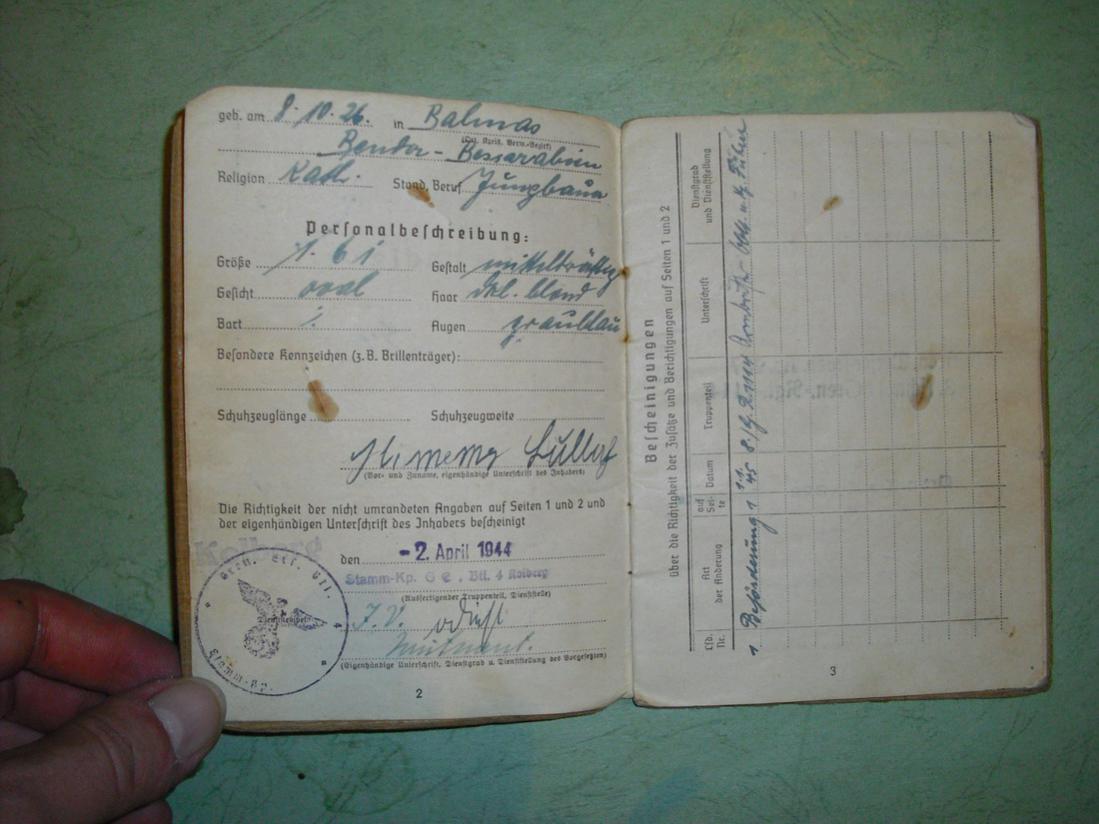 geb. am 8. 10. 26. in Balmas
(Ort, Kreis, Verw.-Bezirk)
Bender - Bessarabien
Religion Kath. Stand, Beruf Jungbauer
Personalbeschreibung:
Größe 1.61 Gestalt mittelkräftig
Gesicht oval Haar dkl. blond
Bart /. Augen graublau
Besondere Kennzeichen (z. B. Brillenträger):
Schuhzeuglänge Schuhzeugweite
(Vor- und Zuname, eigenhändige Unterschrift des Inhabers)
Die Richtigkeit der nicht umrandeten Angaben auf Seiten 1 und 2 und
der eigenhändigen Unterschrift des Inhabers bescheinigt
Kolberg
den -2. April 1944
Stamm-Kp. Btl. 4 Kolberg
(Ausfertigender Truppenteil, Dienststelle)
Gren. Ers. Btl. 4
Dienstsiegel
Stamm-Kp.
I.V.
(Eigenhändige Unterschrift, Dienstgrad u. Dienststellung des Vorgesetzten)
2
Bescheinigungen
über die Richtigkeit der Zusätze und Berichtigungen auf Seiten 1 und 2
Lfd. Nr.
Art der Änderung
auf Seite
Datum
Truppenteil
Unterschrift
Dienstgrad und Dienststellung
1. Beförderung 1 1.1. 45
3